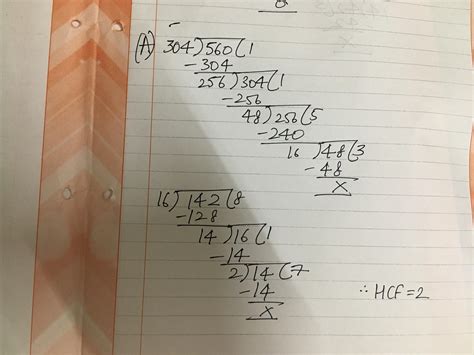 (A) 304)560(1
-304
256)304(1
-256
48)256(5
-240
16)48(3
-48
x
16)142(8
-128
14)16(1
-14
2)14(7
-14
x
∴ HCF=2